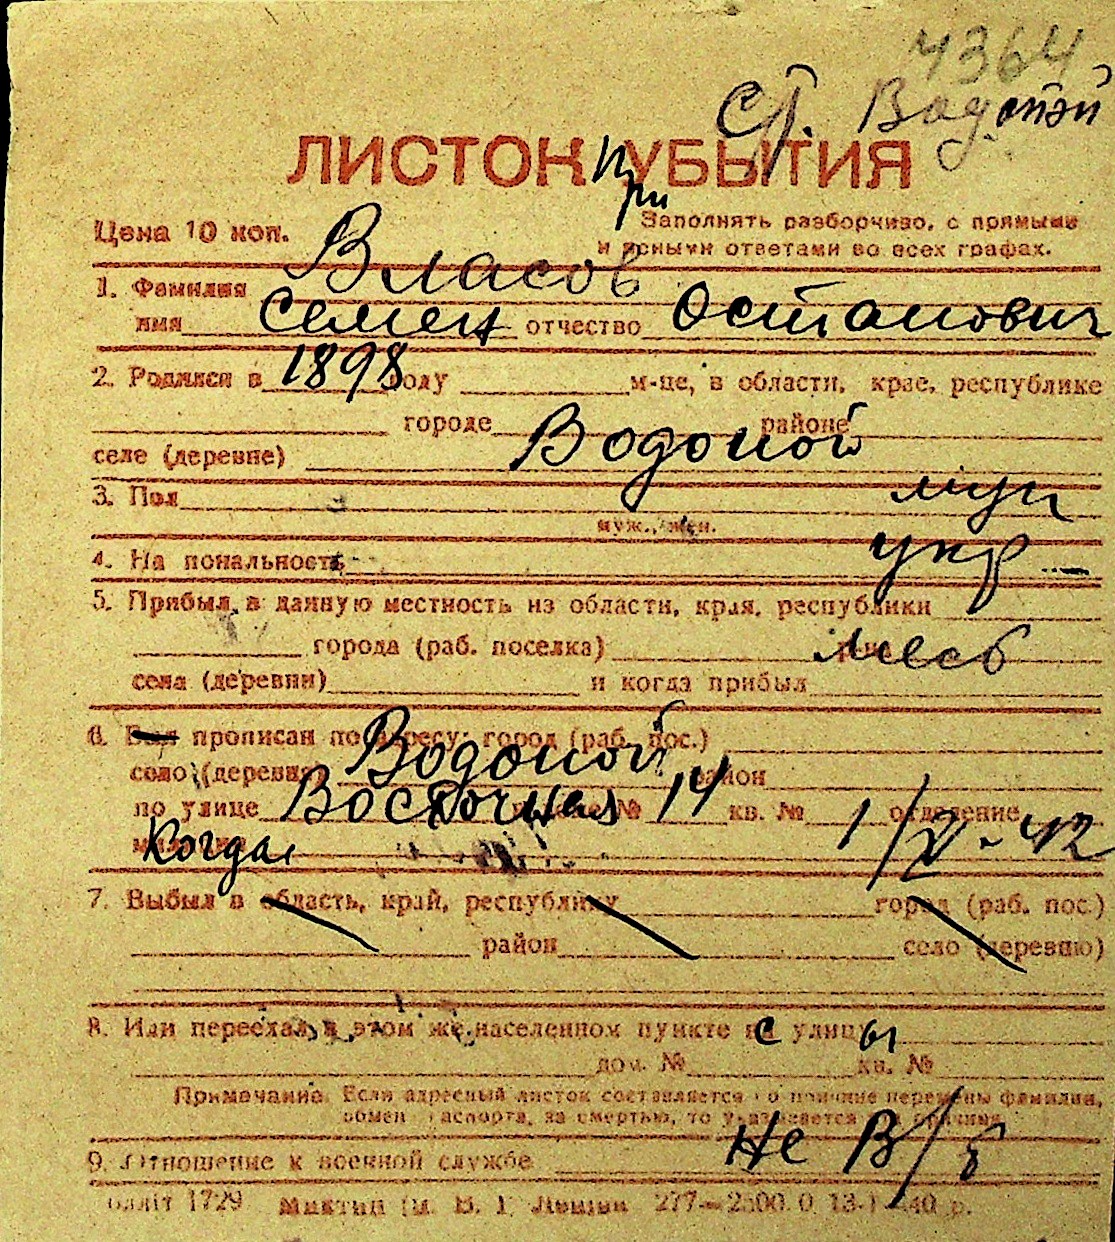 4364
Ст. Водопой
ЛИСТОК при УБЫТИЯ
Цена 10 коп. Заполнять разборчиво, с прямыми
и ясными ответами во всех графах.
1. Фамилия Власов
имя Семен отчество Остапович
2. Родился в 1898 году м-це, в области, крае, республике
городе районе
селе (деревне) Водопой
3. Пол муж
муж., жен.
4. Национальность укр
5. Прибыл в данную местность из области, края, республики
города (раб. поселка)
села (деревни) и когда прибыл
6. Был прописан по адресу: город (раб. пос.)
село (деревня) Водопой район
по улице Восточная № 14 кв. № отделение
Когда 1/V-42
7. Выбыл в область, край, республику город (раб. пос.)
район село (деревню)
8. Или переехал в этом же населенном пункте с улицы
дом. № кв. №
Примечание. Если адресный листок составляется по причине перемены фамилии,
обмен паспорта, за смертью, то указывается
9. Отношение к военной службе не в/б
1729